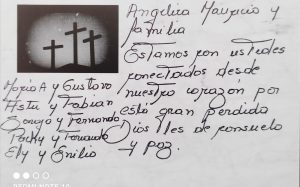 Angelica Mauricio y
familia
Estamos con ustedes
conectados desde
nuestro corazón por
esta gran perdida
Dios lles de consuelo
y paz.
Maria A y Gustavo
Astu y Fabian
Sonya y Fernando
Pochy y Fernando
Ely y Emilio